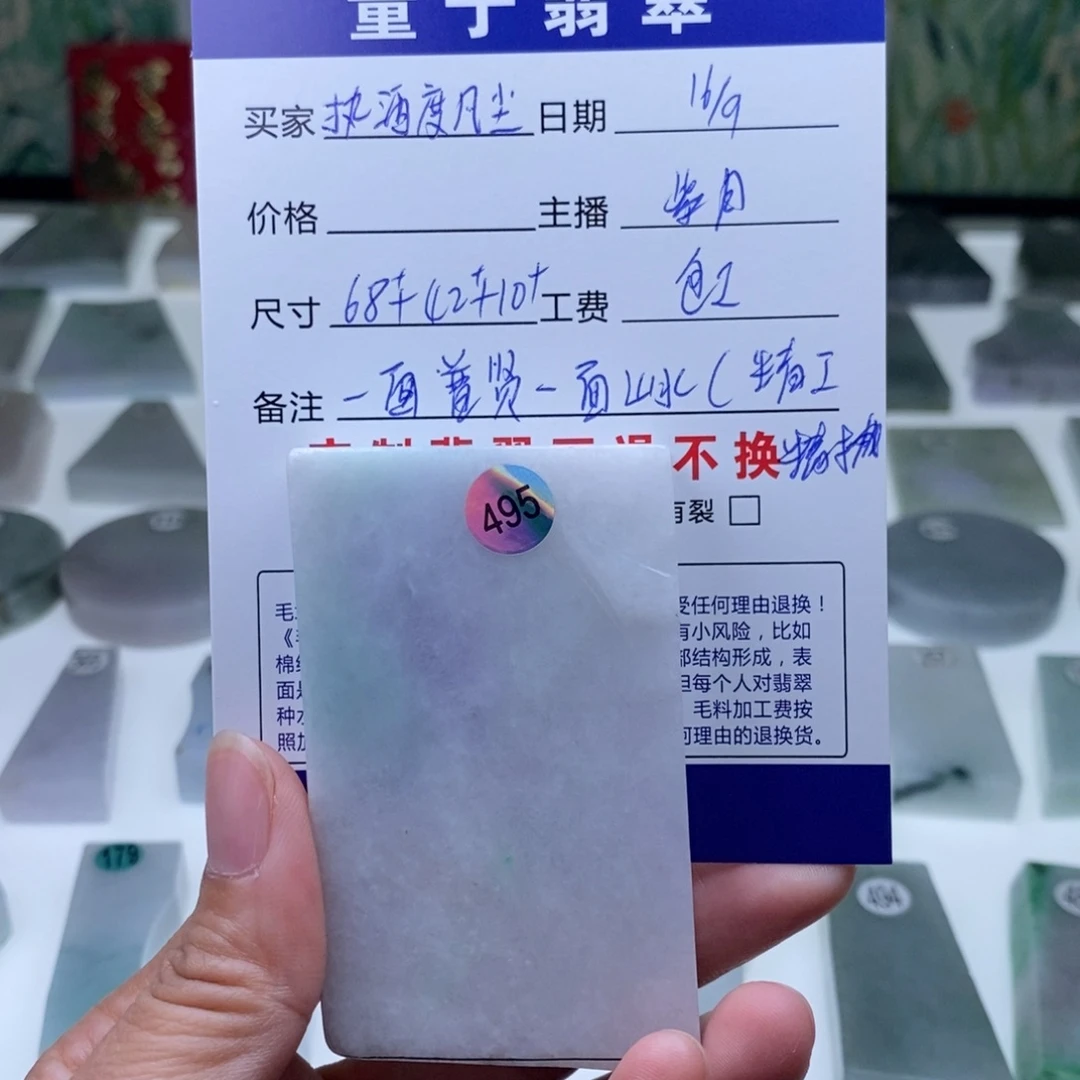 量子翡翠
买家 执酒度凡尘 日期 16/9
价格 主播 紫月
尺寸 68+ 42+ 10+ 工费 包工
备注 一面普贤一面山水(精工
不换 精抛
有裂
495
受任何理由退换！
有小风险，比如
部结构形成，表
但每个人对翡翠
种水 毛料加工费按
照加 何理由的退换货。
179
494